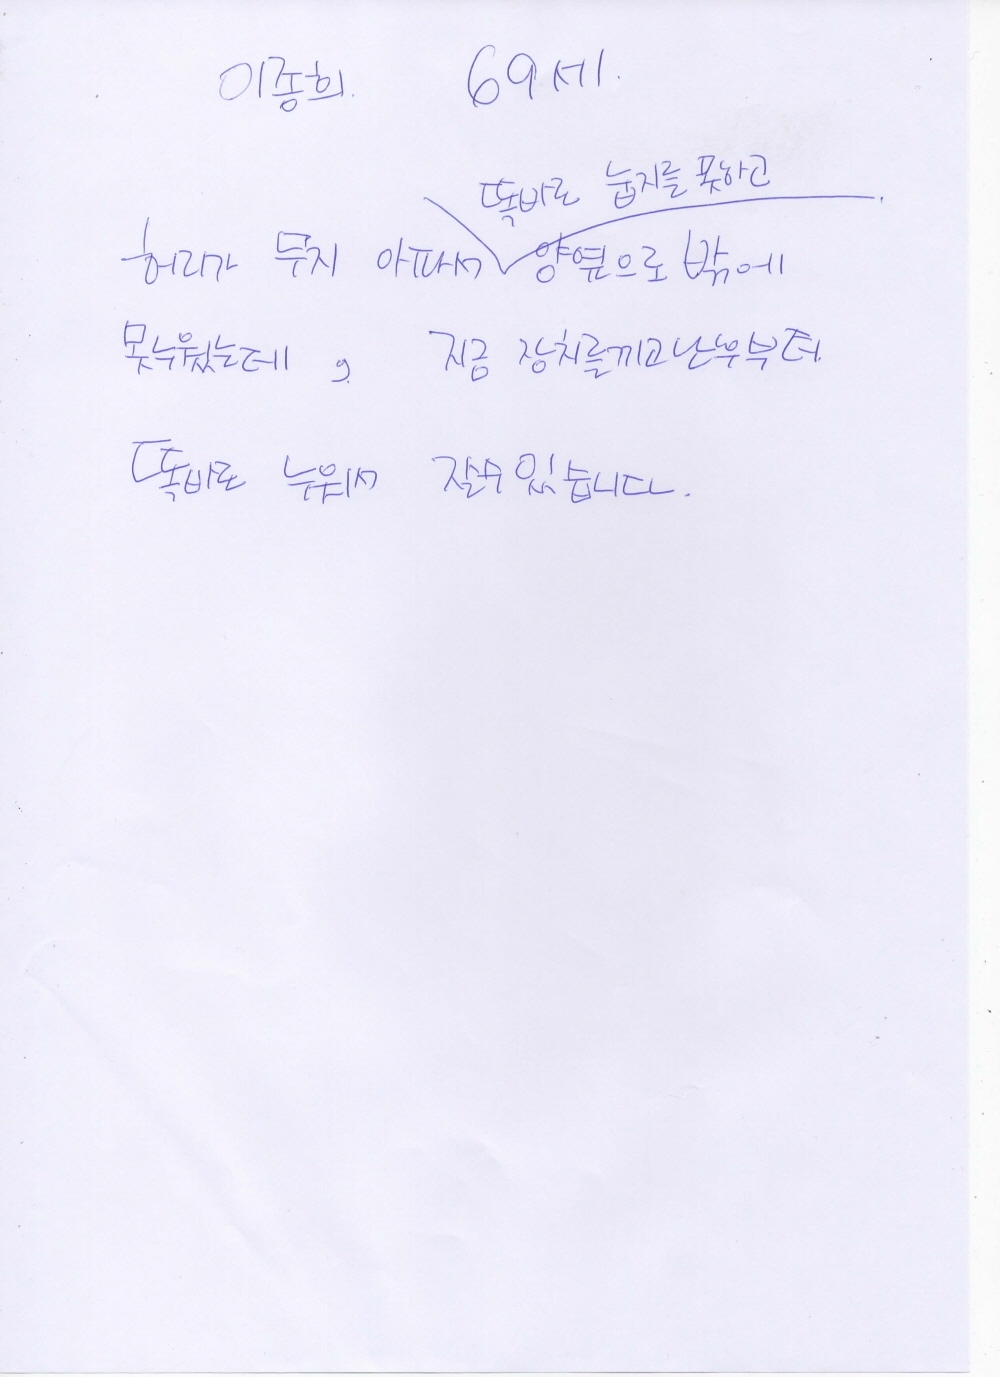 이종희. 69세.
똑바로 눕지를 못하고
허리가 무지 아파서 양옆으로 밖에
못누웠는데, 지금 장치를끼고난후부터
똑바로 누워서 잘수있습니다.